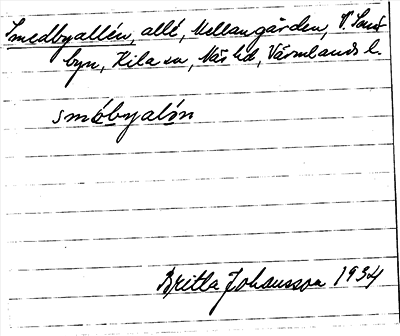 Smedbyallén, allé, Mellangården, V. Sund
byn, Kila sn, Näs hd, Värmlands l.
smó̱byaló̱n
Britta Johansson 1934